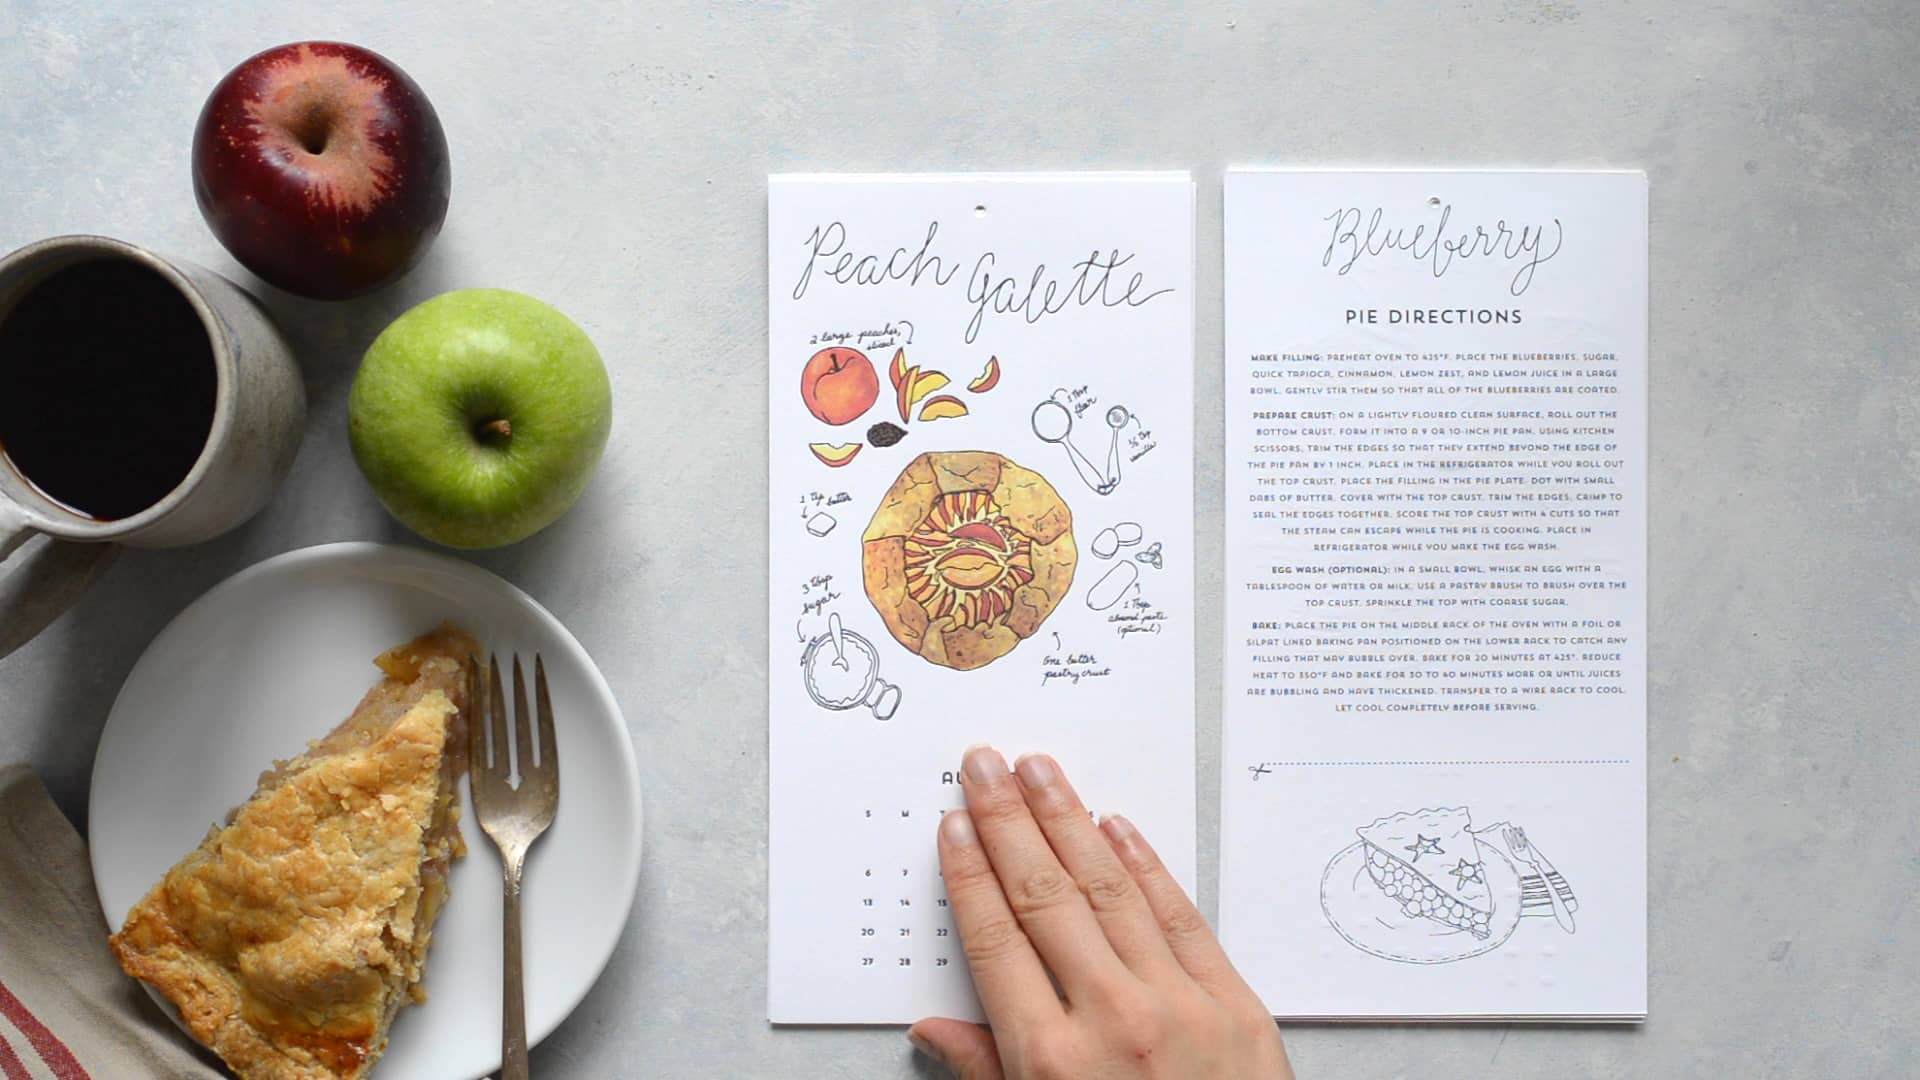 Peach Galette
2 large peaches,
sliced
1 Tbsp
flour
1 Tsp butter
3 Tbsp
sugar
1 Tbsp
almond paste
(optional)
One butter
pastry crust
S M
6 7
13 14 15
20 21 22
27 28 29
Blueberry
PIE DIRECTIONS
MAKE FILLING: PREHEAT OVEN TO 425°F. PLACE THE BLUEBERRIES, SUGAR,
QUICK TAPIOCA, CINNAMON, LEMON ZEST, AND LEMON JUICE IN A LARGE
BOWL. GENTLY STIR THEM SO THAT ALL OF THE BLUEBERRIES ARE COATED.
PREPARE CRUST: ON A LIGHTLY FLOURED CLEAN SURFACE, ROLL OUT THE
BOTTOM CRUST. FORM IT INTO A 9 OR 10-INCH PIE PAN. USING KITCHEN
SCISSORS, TRIM THE EDGES SO THAT THEY EXTEND BEYOND THE EDGE OF
THE PIE PAN BY 1 INCH. PLACE IN THE REFRIGERATOR WHILE YOU ROLL OUT
THE TOP CRUST. PLACE THE FILLING IN THE PIE PLATE. DOT WITH SMALL
DABS OF BUTTER. COVER WITH THE TOP CRUST. TRIM THE EDGES, CRIMP TO
SEAL THE EDGES TOGETHER. SCORE THE TOP CRUST WITH 4 CUTS SO THAT
THE STEAM CAN ESCAPE WHILE THE PIE IS COOKING. PLACE IN
REFRIGERATOR WHILE YOU MAKE THE EGG WASH.
EGG WASH (OPTIONAL): IN A SMALL BOWL, WHISK AN EGG WITH A
TABLESPOON OF WATER OR MILK. USE A PASTRY BRUSH TO BRUSH OVER THE
TOP CRUST. SPRINKLE THE TOP WITH COARSE SUGAR.
BAKE: PLACE THE PIE ON THE MIDDLE RACK OF THE OVEN WITH A FOIL OR
SILPAT LINED BAKING PAN POSITIONED ON THE LOWER RACK TO CATCH ANY
FILLING THAT MAY BUBBLE OVER. BAKE FOR 20 MINUTES AT 425°. REDUCE
HEAT TO 350°F AND BAKE FOR 30 TO 40 MINUTES MORE OR UNTIL JUICES
ARE BUBBLING AND HAVE THICKENED. TRANSFER TO A WIRE RACK TO COOL.
LET COOL COMPLETELY BEFORE SERVING.